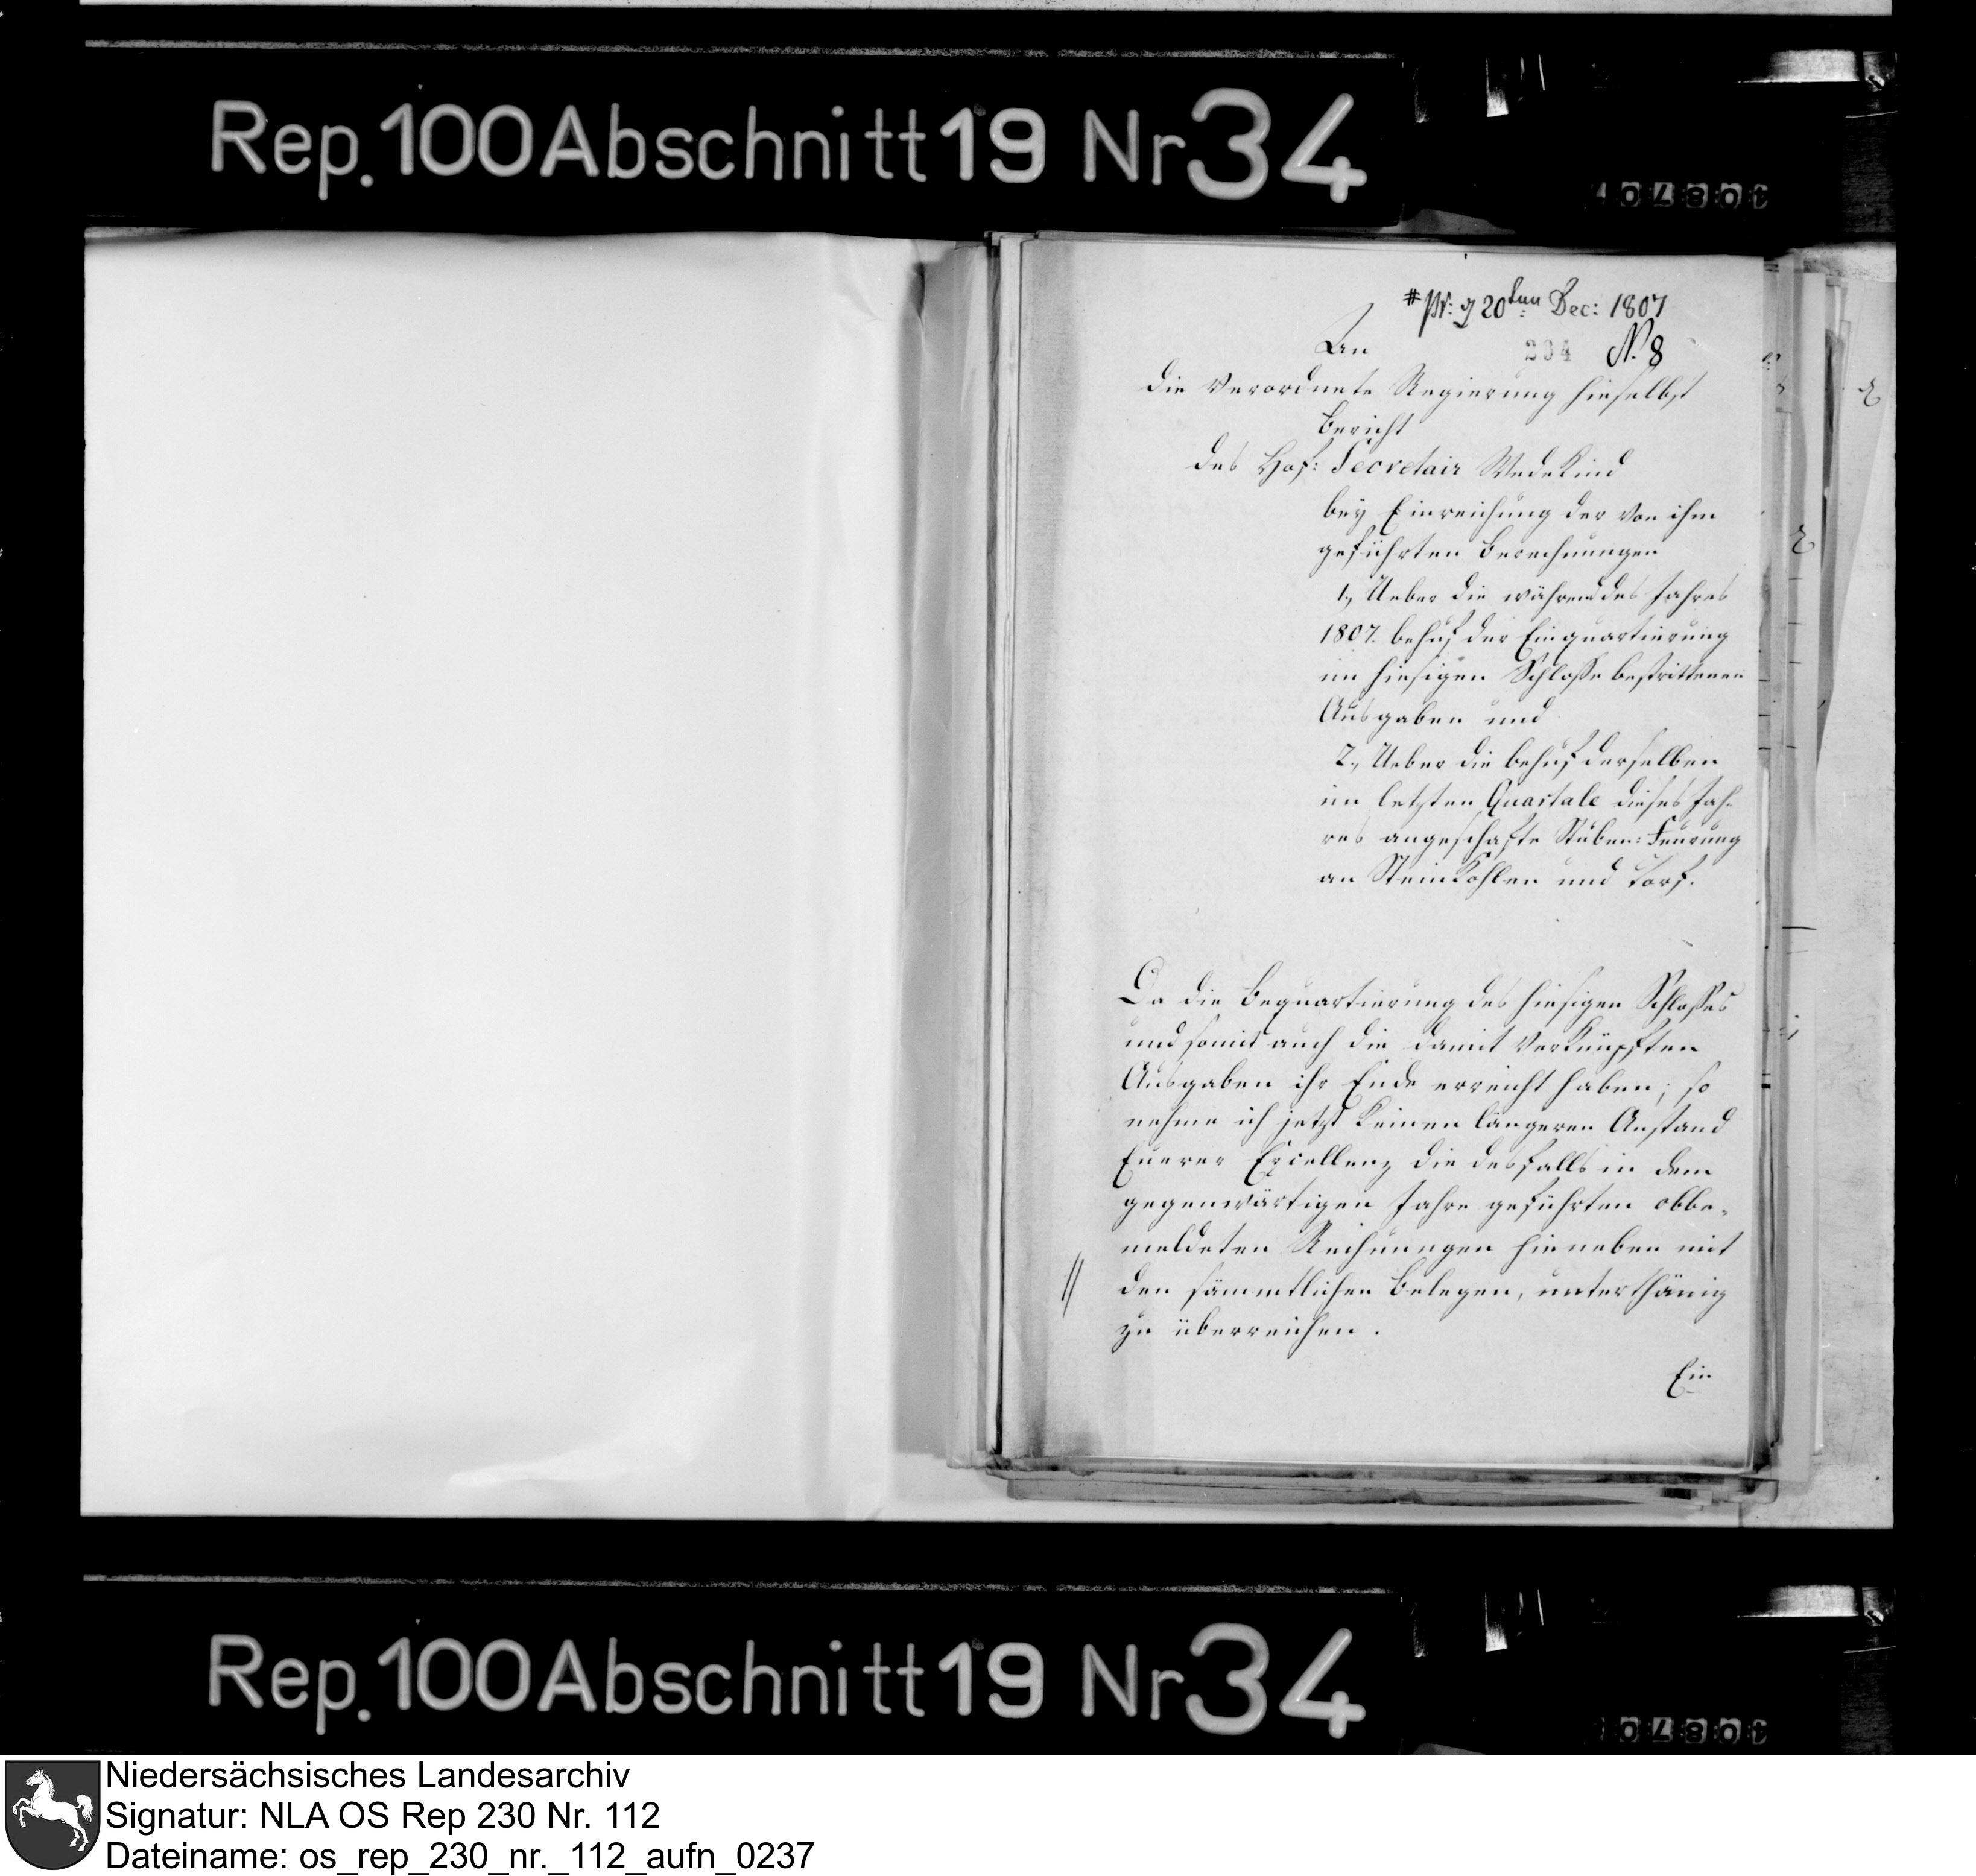 Rep. 100 Abschnitt 19 Nr 34
#pr: d 20ten Dec: 1807
An
204 N. 8
die verordnete Regierung hieselbst
Bericht
des Hof: Secretair Wedekind
bey Einreichung der von ihm
geführten Berechnungen
1, Ueber die während des Jahres
1807. behuf der Einquartierung
im hiesigen Schlosse bestrittenen
Ausgaben und
2, Ueber die behuf derselben
im letzten Quartale dieses Jah-
res angeschafte Stuben: Feurung
an Steinkohlen und Torf.
Da die Bequartierung des hiesigen Schlosses
und somit auch die damit verknüpften
Ausgaben ihr Ende erreicht haben; so
nehme ich jetzt keinen längeren Anstand
Euerer Excellenz die desfalls in dem
gegenwärtigen Jahre geführten obbe-
meldeten Rechnungen hieneben mit
den sämmtlichen Belegen, unterthänig
zu überreichen.
Ein
Rep. 100 Abschnitt 19 Nr 34
Niedersächsisches Landesarchiv
Signatur: NLA OS Rep 230 Nr. 112
Dateiname: os_rep_230_nr._112_aufn_0237